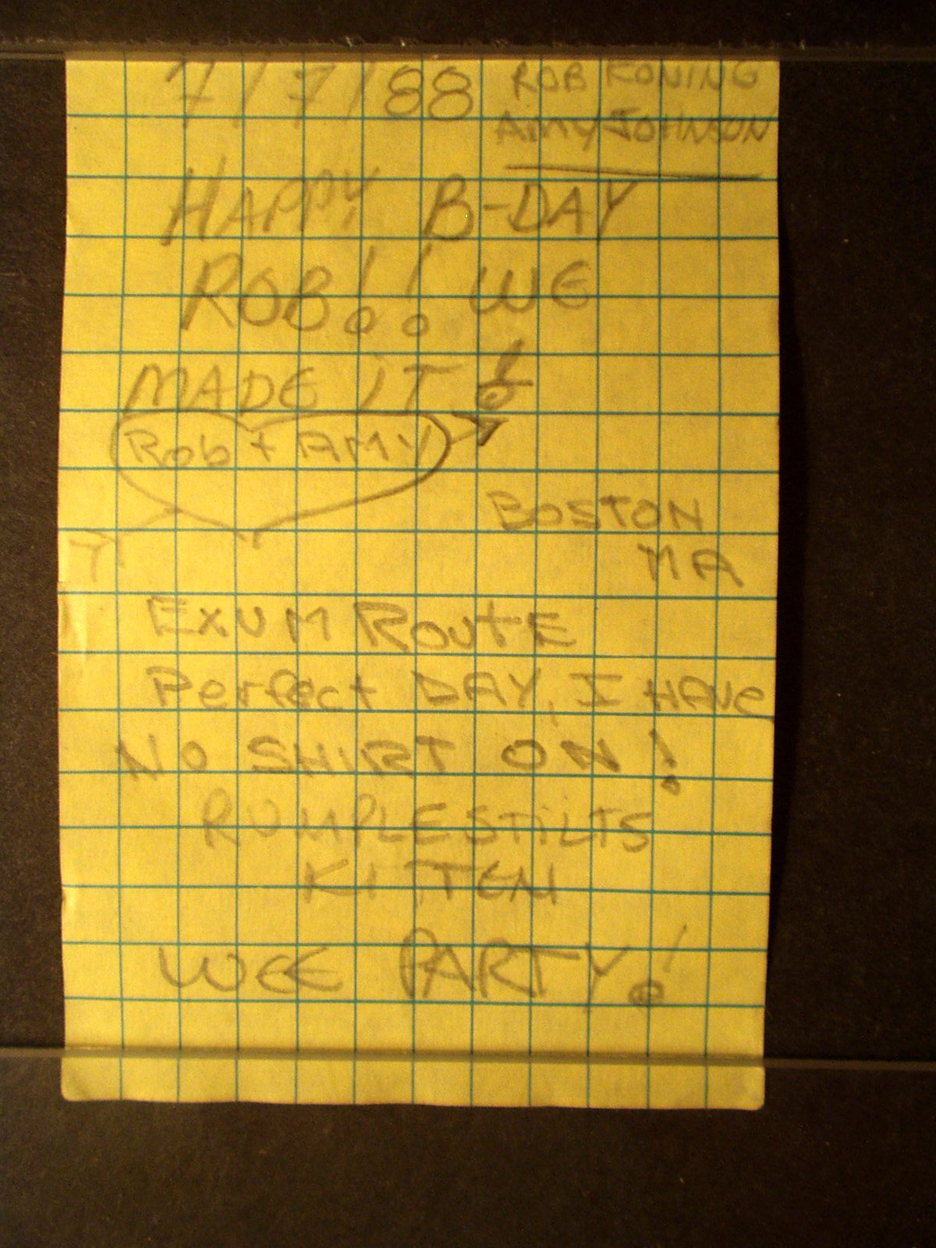 7/7/88 ROB KONING
Amy JOHNSON
HAPPY B-DAY
ROB!! WE
MADE IT!
Rob + AMY
BOSTON
MA
EXUM ROUTE
Perfect DAY, I HAVE
NO SHIRT ON!
RUMPLESTILTS
KITTEN
WEE PARTY!